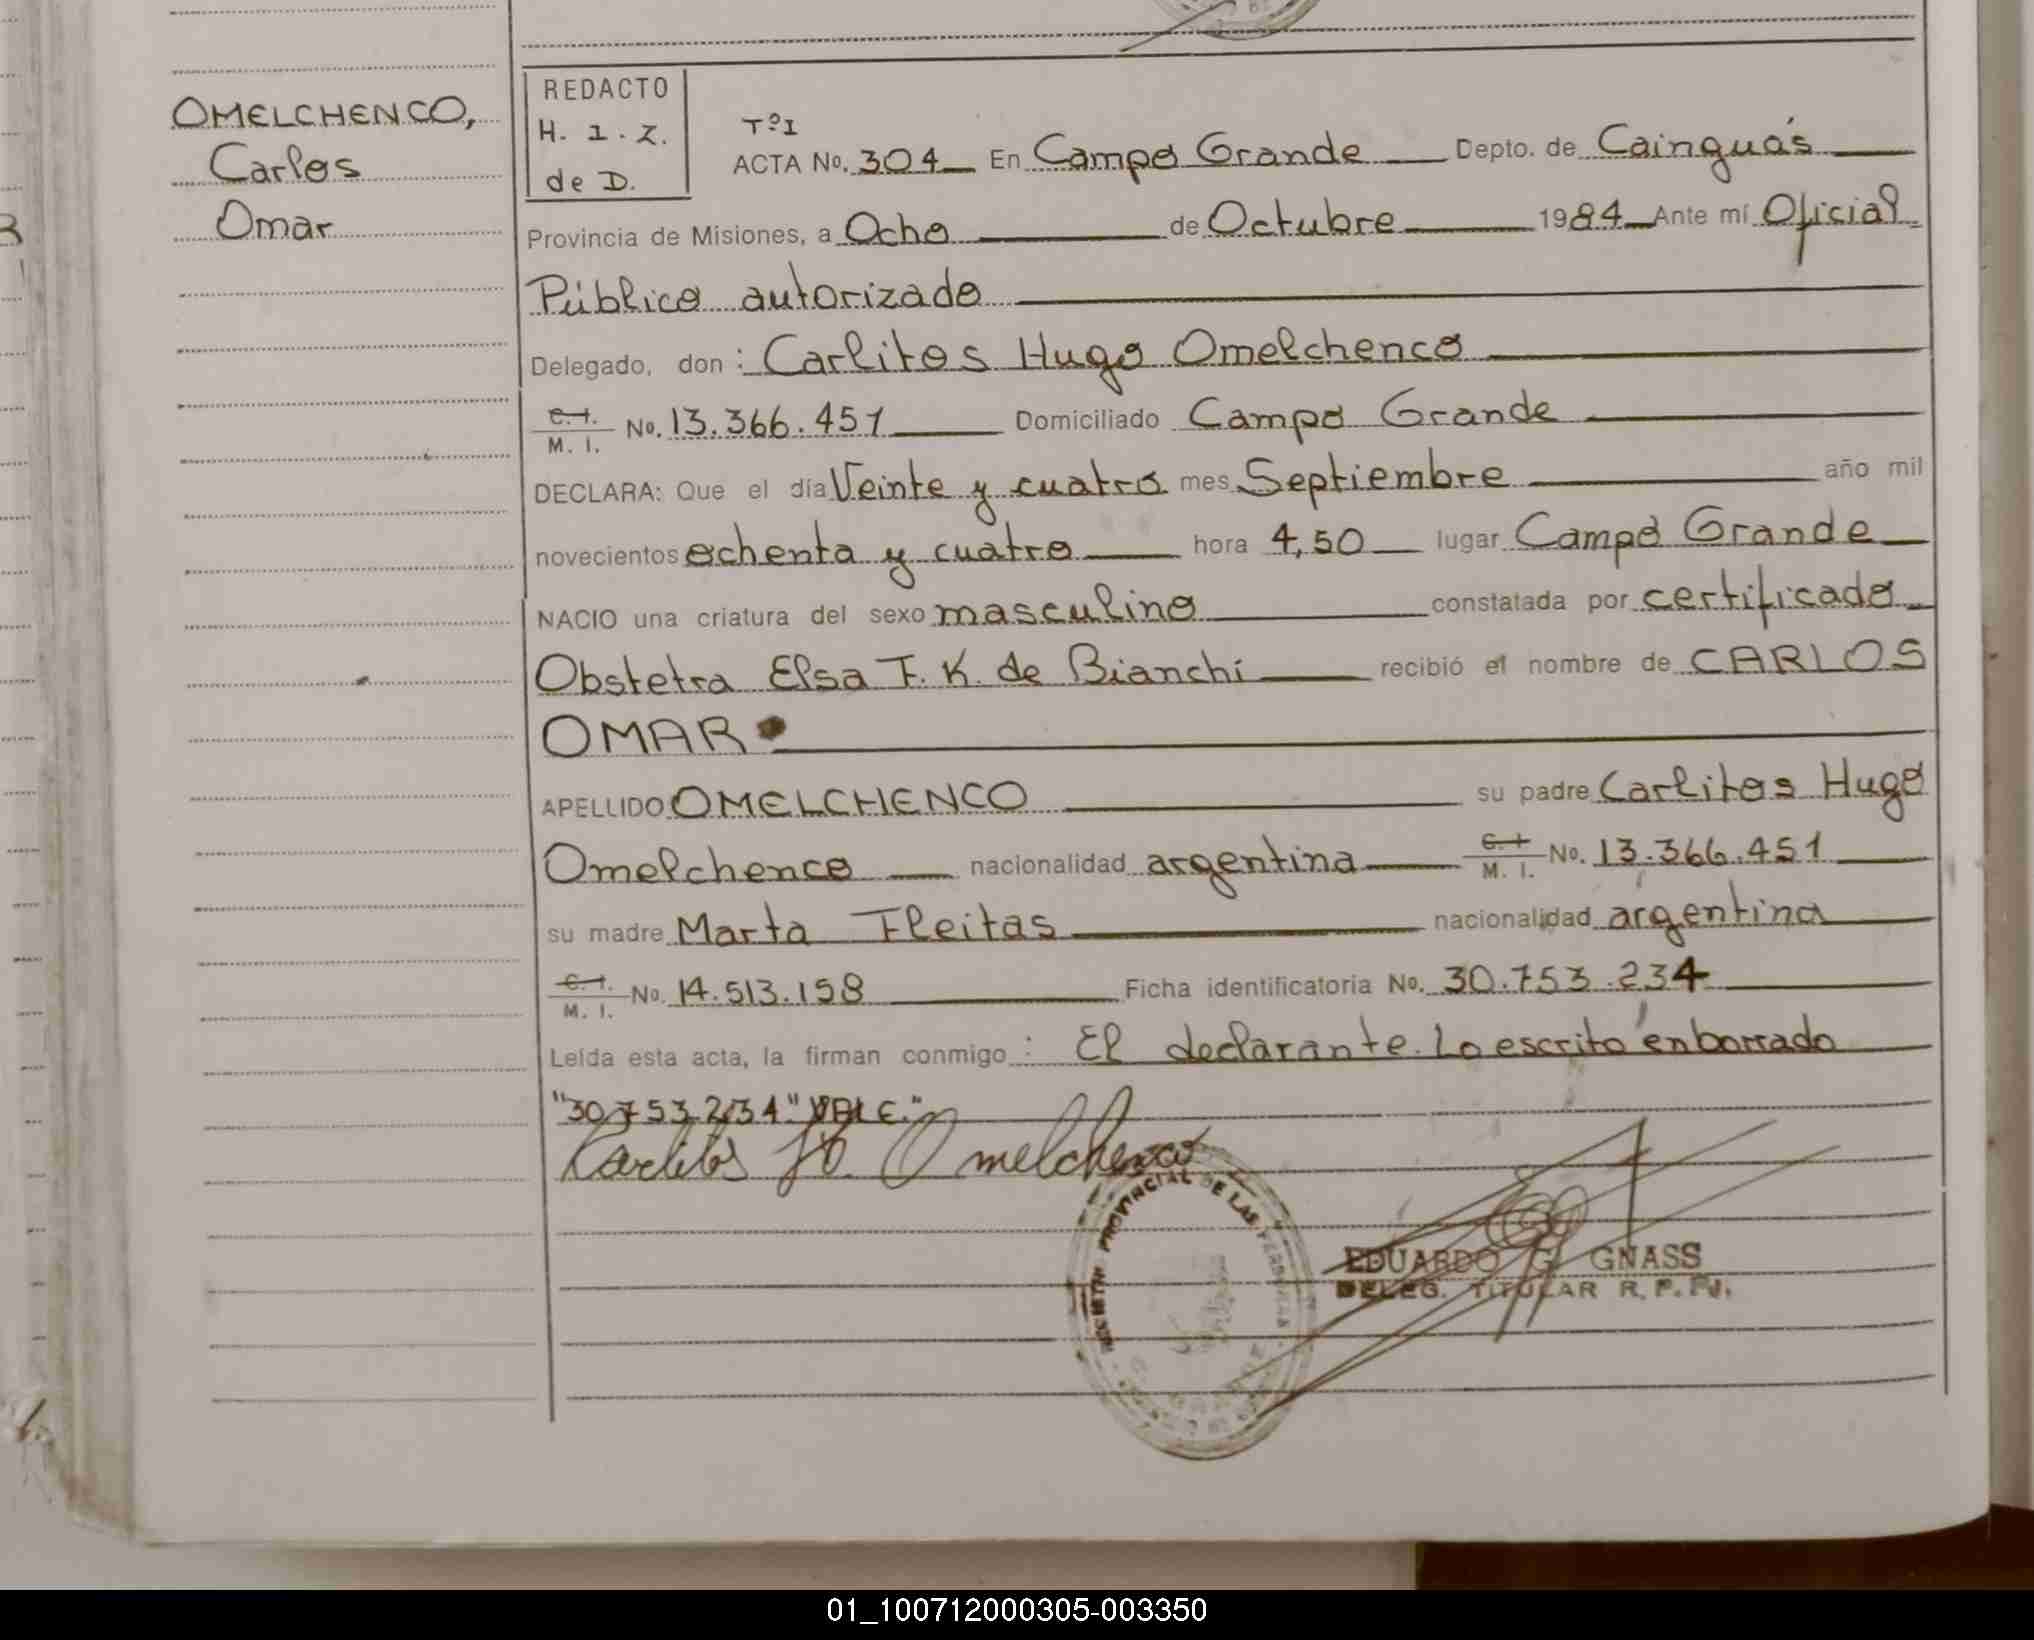 OMELCHENCO,
Carlos
Omar
REDACTO
H. I. Z.
de D.
Tº I
ACTA No. 304 En Campo Grande Depto. de Cainguás
Provincia de Misiones, a Ocho de Octubre 1984 Ante mí Oficial
Público autorizado
Delegado, don: Carlitos Hugo Omelchenco
C. I.
M. I. No. 13.366.451 Domiciliado Campo Grande
DECLARA: Que el día Veinte y cuatro mes Septiembre año mil
novecientos ochenta y cuatro hora 4,50 lugar Campo Grande
NACIO una criatura del sexo masculino constatada por certificado
Obstetra Elsa F. K. de Bianchi recibió el nombre de CARLOS
OMAR
APELLIDO OMELCHENCO su padre Carlitos Hugo
Omelchenco nacionalidad argentina C. I.
M. I. No. 13.366.451
su madre Marta Fleitas nacionalidad argentina
C. I.
M. I. No. 14.513.158 Ficha identificatoria No. 30.753.234
Leída esta acta, la firman conmigo: El declarante. Lo escrito enborrado
"30.753.234" VALE."
Carlitos H. Omelchenco
PROVINCIAL DE LAS PERSONAS
EDUARDO G. GNASS
DELEG. TITULAR R. P. PJ.
01_100712000305-003350